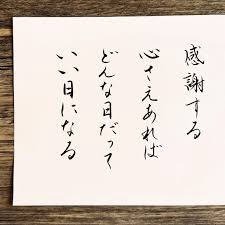 感謝する
心さえあれば
どんな日だって
いい日になる